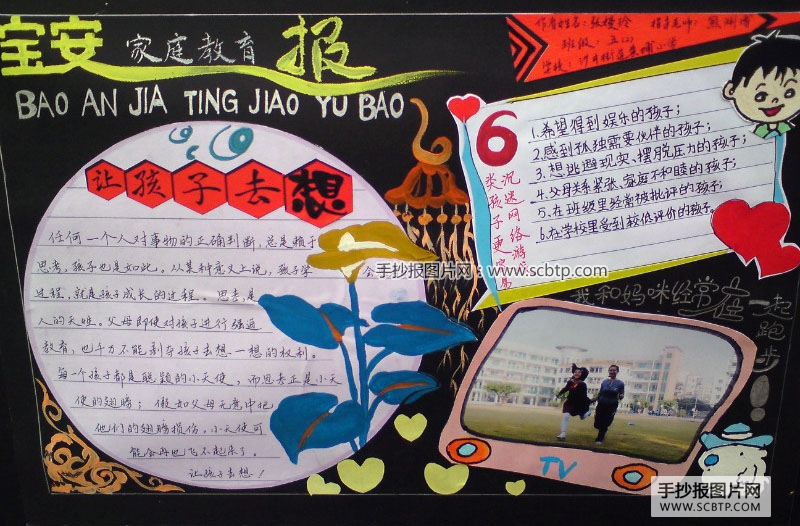 宝安家庭教育报
BAO AN JIA TING JIAO YU BAO
班级：五(2)
让孩子去想
任何一个人对事物的正确判断，总是赖于
思考，孩子也是如此。从某种意义上说，孩子学
会
过程，就是孩子成长的过程。思考是
人的天性。父母即使对孩子进行强迫
教育，也千万不能剥夺孩子去想一想的权利。
每一个孩子都是聪颖的小天使，而思去正是小天
使的翅膀；假如父母无意中把
他们的翅膀损伤。小天使可
能会再也飞不起来了。
让孩子去想！
6类孩子更容易沉迷网络游戏
1.希望得到娱乐的孩子；
2.感到孤独需要伙伴的孩子；
3.想逃避现实、摆脱压力的孩子；
4.父母关系紧张、家庭不和睦的孩子；
5.在班级里经常被批评的孩子；
6.在学校里受到较低评价的孩子。
我和妈咪经常在一起
跑步！
TV
手抄报图片网：www.scbtp.com
手抄报图片网
WWW.SCBTP.COM